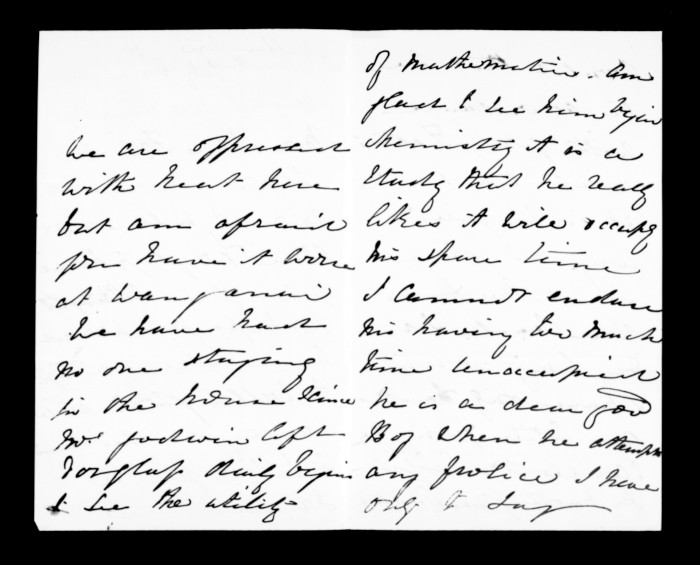 we are oppressed
with heat here
but am afraid
you have it worse
at Wanganui
We have had
no one staying
in the house since
Mrs Godwin left
Douglas daily begins
to see the utility
of mathematics. Am
glad to see him begin
chemistry it is a
study that he really
likes it will occupy
his spare time
I cannot endure
his having too much
time unoccupied
he is a dear good
Boy when he attempts
any frolics I have
only to say